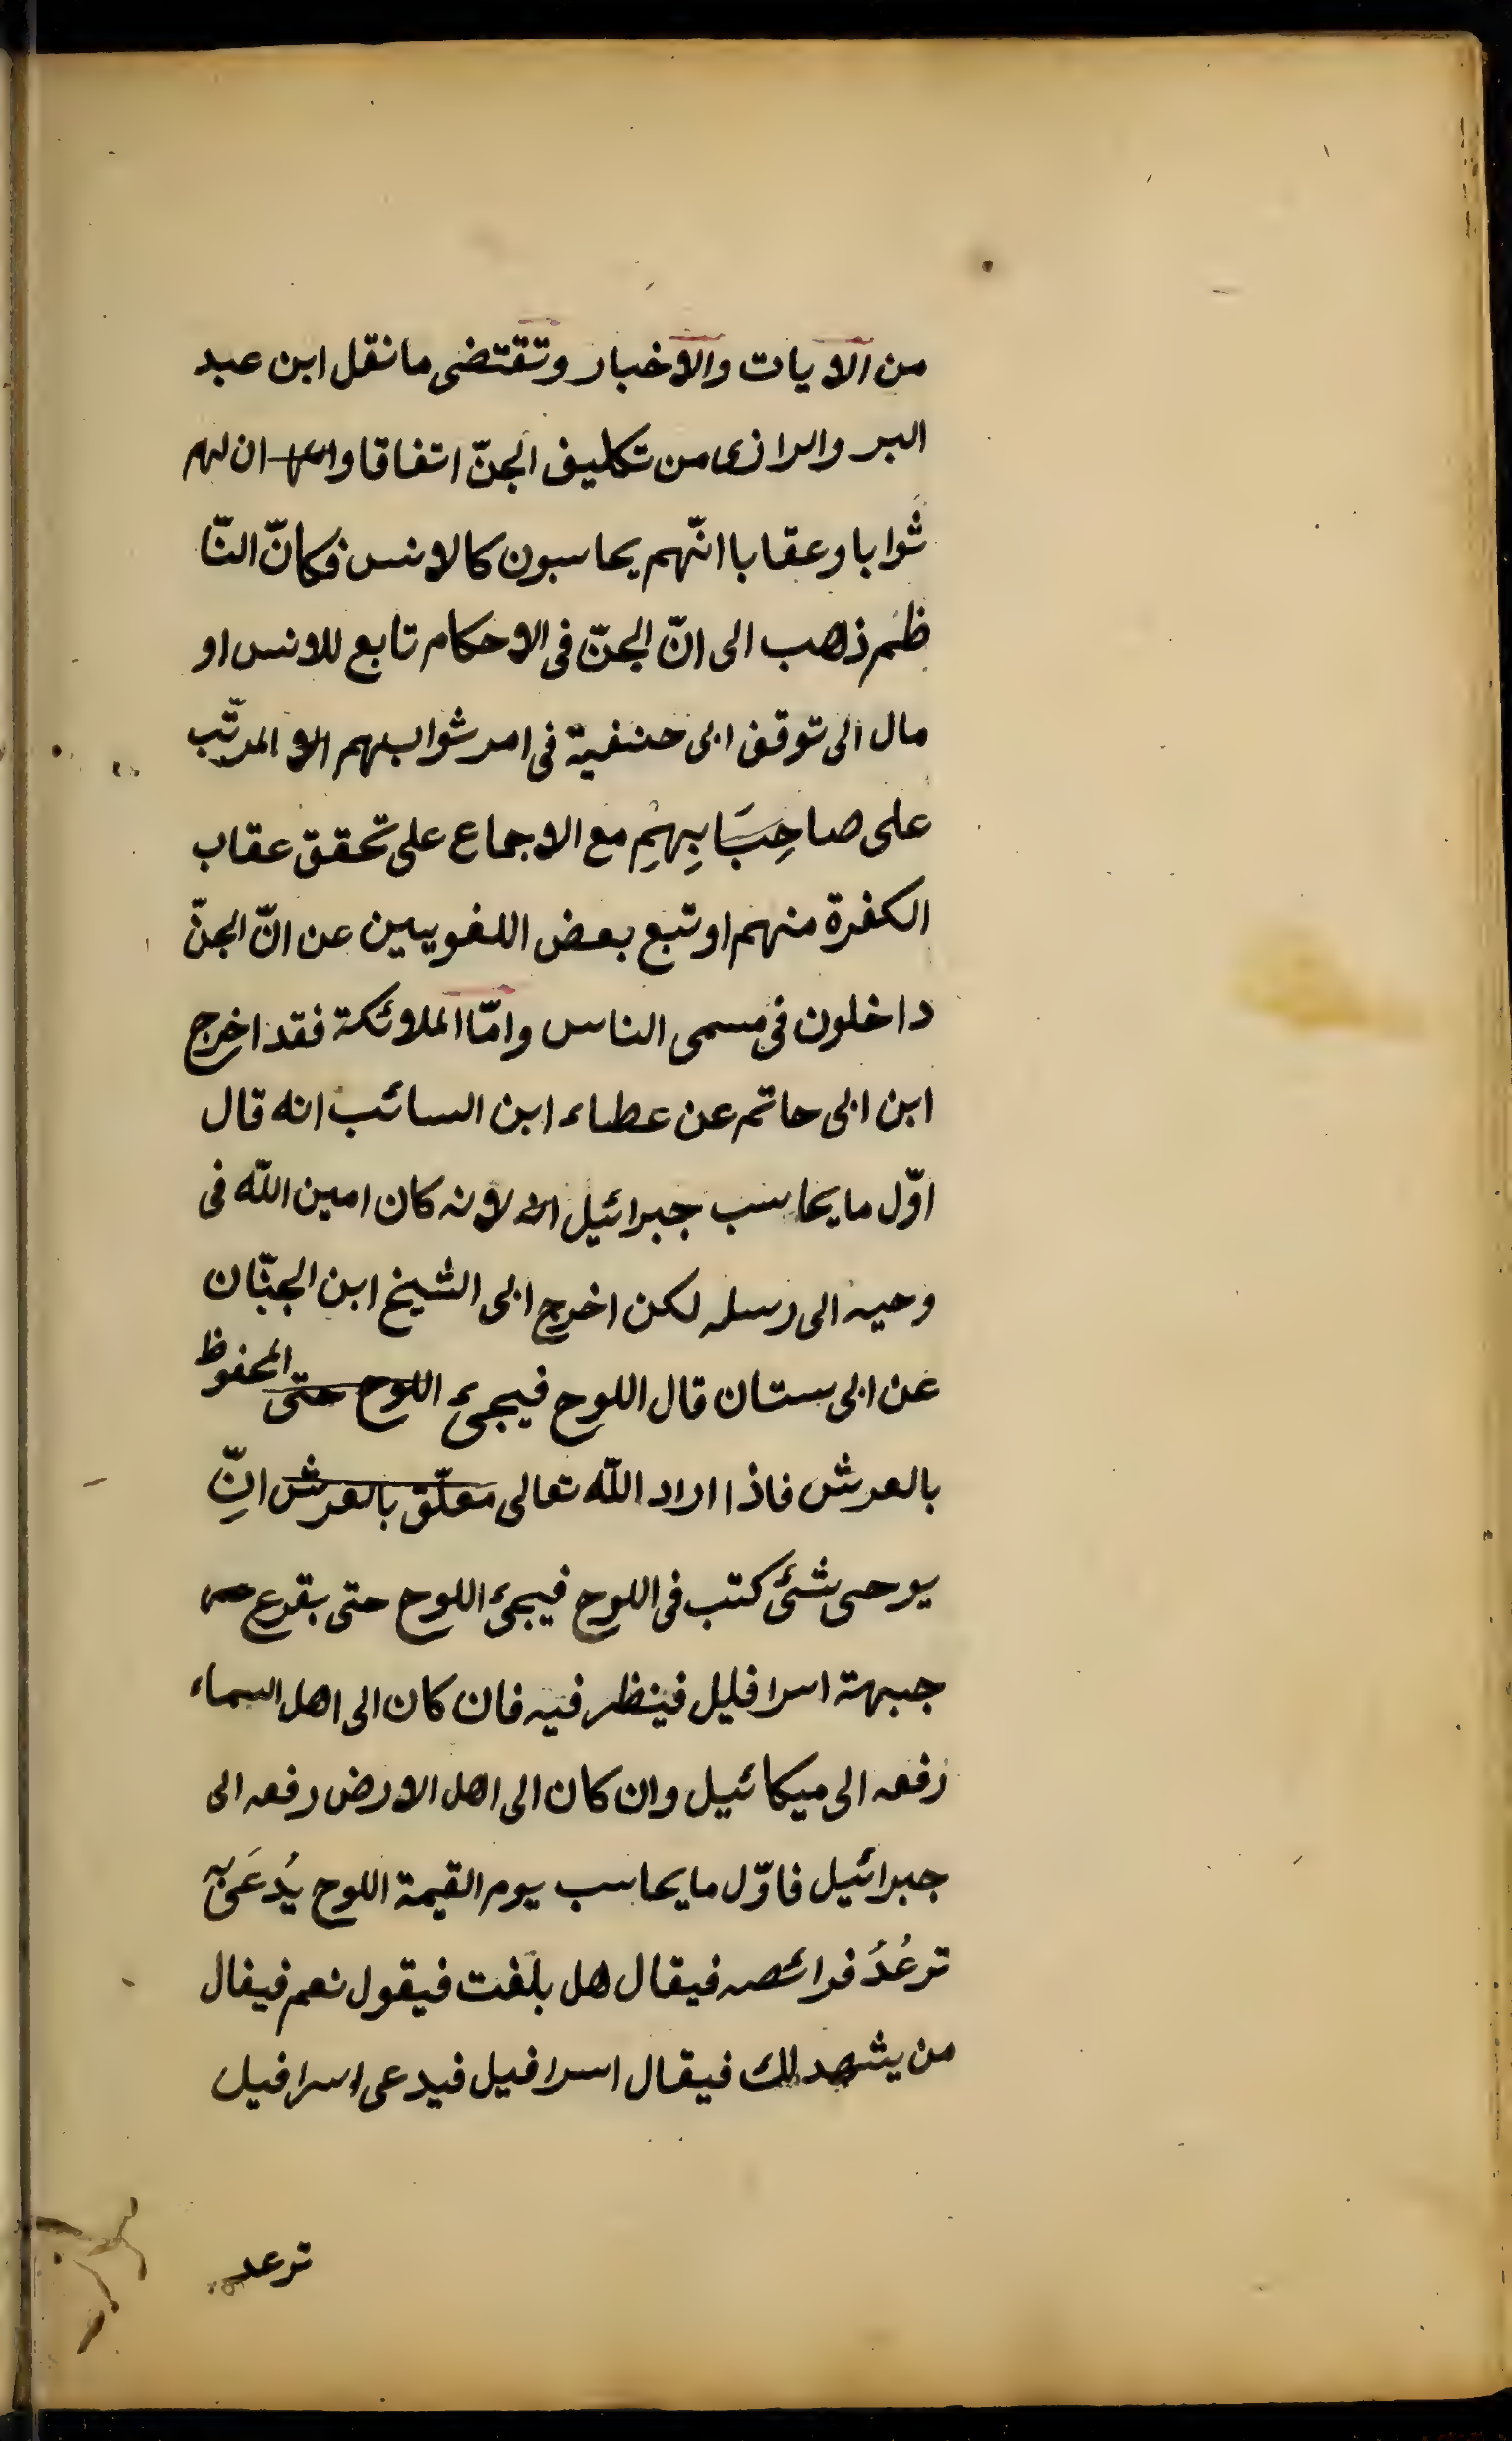 من الايات والاخبار وتقتضى ما نقل ابن عبد
البر والرازى من تكليف الجنّ اتفاقا ان لهم
ثوابا وعقابا انّهم يحاسبون كالانس فكانّ النّا
ظم ذهب الى انّ الجنّ فى الاحكام تابع للانس او
مال الى توقف ابى حنفية فى امر ثوابهم المرتّب
على صاحِسَابِهِم مع الاجماع على تحقق عقاب
الكفرة منهم او تبع بعض اللغويين عن انّ الجنّ
داخلون فى مسمى الناس وامّا الملائكة فقد اخرج
ابن ابى حاتم عن عطاء ابن السائب انه قال
اوّل ما يحاسب جبرائيل لانه كان امين اللّه فى
وحيه الى رسله لكن اخرج ابى الشيخ ابن الجبّان
عن ابى ستان قال اللوح فيجئ اللوح حتى المحفوظ
بالعرش فاذا اراد اللّه تعالى معلّق بالعرش انّ
يوحى شئ كتب فى اللوح فيجئ اللوح حتى بقرع
جبهة اسرافليل فينظر فيه فان كان الى اهل السماء
رفعه الى ميكائيل وان كان الى اهل الارض رفعه الى
جبرائيل فاوّل ما يحاسب يوم القيمة اللوح يُدعَى به
ترعُدُ فرائصه فيقال هل بلّغت فيقول نعم فيقال
من يشهد لك فيقال اسرافيل فيدعى اسرافيل
ترعد